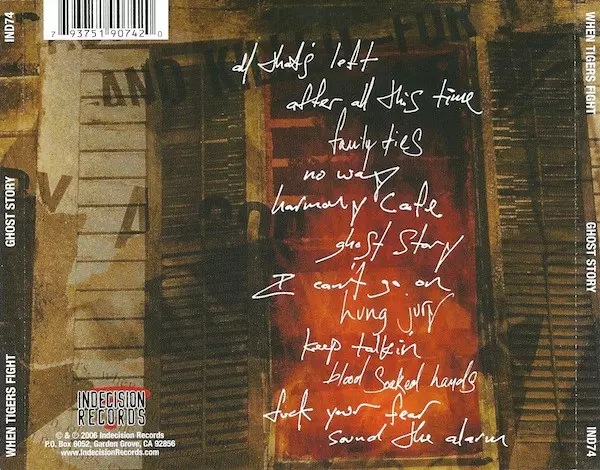 IND74
GHOST STORY
WHEN TIGERS FIGHT
7 93751 90742 0
AND KILL IT FOR
all that's left
after all this time
family ties
no way
harmony cafe
ghost story
I can't go on
hung jury
keep talkin
blood soaked hands
fuck your fear
sound the alarm
INDECISION
RECORDS
© & ℗ 2006 Indecision Records
P.O. Box 6052, Garden Grove, CA 92856
www.IndecisionRecords.com
WHEN TIGERS FIGHT
GHOST STORY
IND74